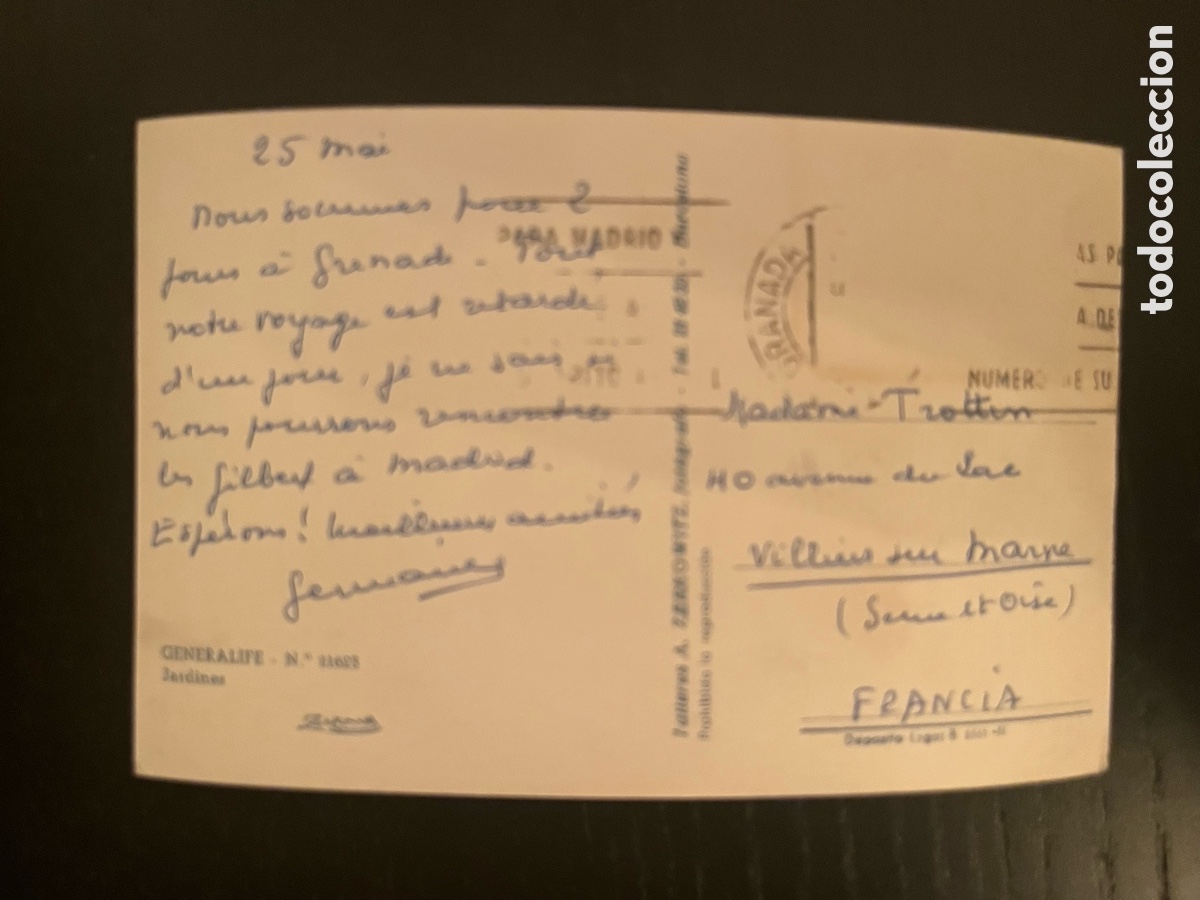 25 mai
Nous sommes pour 2
jours à Grenade - Tout
notre voyage est retardé
d'un jour, je ne sais si
nous pourrons rencontrer
les Gilbert à Madrid.
Espérons! Meilleures amitiés
GENERALIFE - N.º 11625
Jardines
Talleres A. ZERKOWITZ, Fotógrafo - Barcelona
Prohibida la reproducción
PARA MADRID
GRANADA
AS PA
A DE
NUMERO DE SU
Madame Trottin
40 avenue du Lac
Villiers sur Marne
(Seine et Oise)
FRANCIA
Depósito Legal B.
todocoleccion